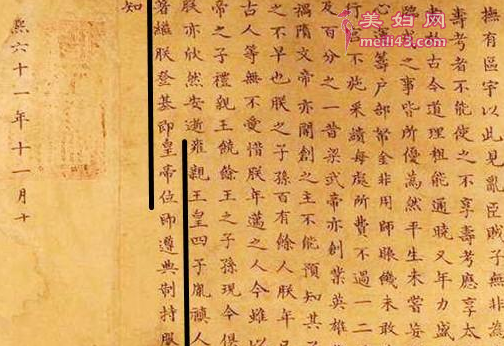 撫有區宇以此見亂臣賊子無非為
壽考者不能使之不享壽考應享太
於古今道理粗能通曉又年力盛
之事皆所優為然平生未嘗妄
心籌戶部帑金非用師賑饑未敢
行宮不施采繢每處所費不過一二
及百分之一昔梁武帝亦創業英雄
禍隋文帝亦開創之主不能預知其
之不早也朕之子孫百有餘人朕年已
古人等無不愛惜朕年邁之人今雖以
帝之子禮親王饒餘王之子孫現今俱
朕亦欣然安逝雍親王皇四子胤禛人
著繼朕登基即皇帝位即遵典制持服
知
熙六十一年十一月十
美妇网
meili43.com